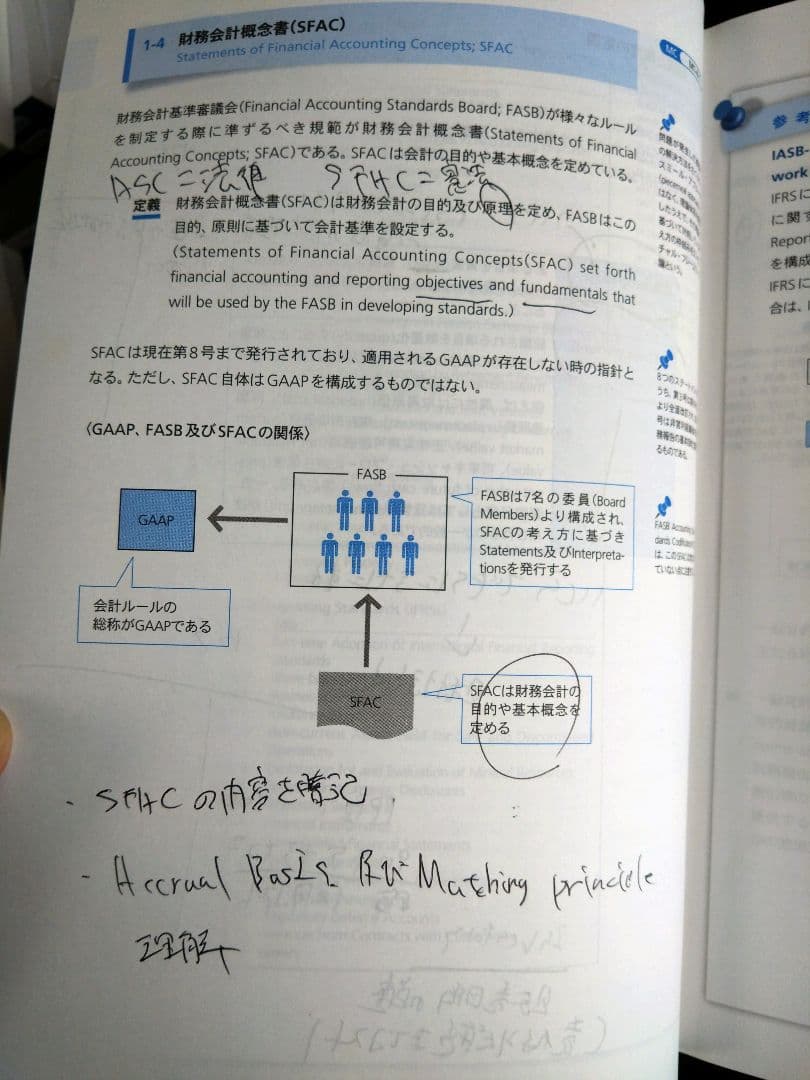 1-4 財務会計概念書(SFAC)
Statements of Financial Accounting Concepts; SFAC
MC
財務会計基準審議会(Financial Accounting Standards Board; FASB)が様々なルール
を制定する際に準ずるべき規範が財務会計概念書(Statements of Financial
Accounting Concepts; SFAC)である。SFACは会計の目的や基本概念を定めている。
ASC=法律 SFAC=憲法
定義 財務会計概念書(SFAC)は財務会計の目的及び原理を定め、FASBはこの
目的、原則に基づいて会計基準を設定する。
(Statements of Financial Accounting Concepts(SFAC) set forth
financial accounting and reporting objectives and fundamentals that
will be used by the FASB in developing standards.)
SFACは現在第8号まで発行されており、適用されるGAAPが存在しない時の指針と
なる。ただし、SFAC自体はGAAPを構成するものではない。
〈GAAP、FASB及びSFACの関係〉
FASB
GAAP
FASBは7名の委員(Board
Members)より構成され、
SFACの考え方に基づき
Statements及びInterpreta-
tionsを発行する
会計ルールの
総称がGAAPである
SFAC
SFACは財務会計の
目的や基本概念を
定める
・SFACの内容を暗記
- Accrual Basis 及び Matching principle
理解
参考
IASB-
work
IFRSに
に関す
Repor
を構成
IFRSに
合は、